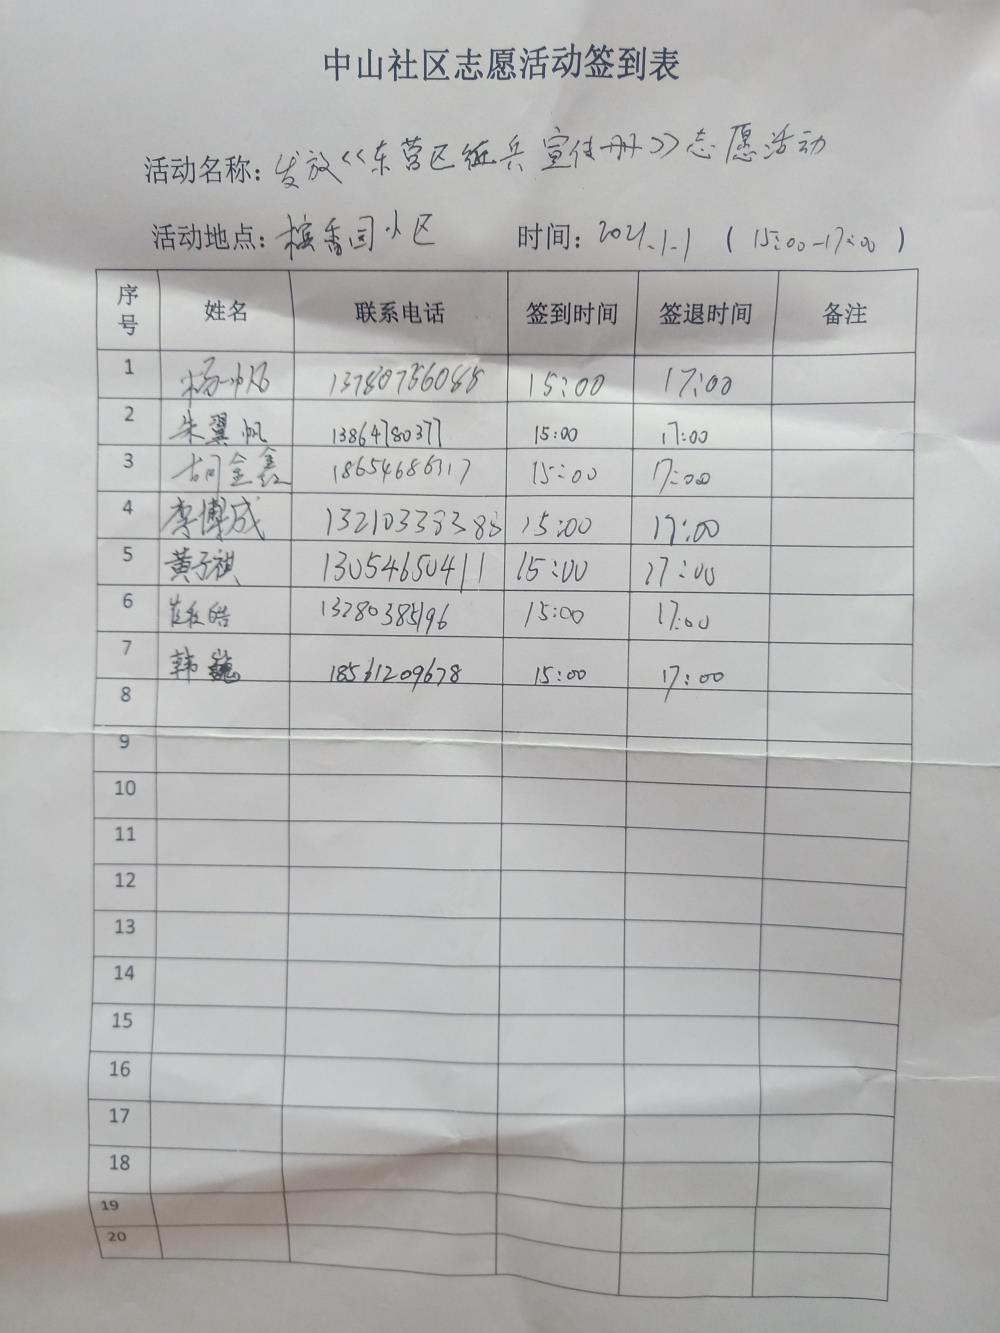 中山社区志愿活动签到表
活动名称：发放《东营区征兵宣传册》志愿活动
活动地点：槟香园小区 时间：2021.1.1（15:00-17:00）
序号 姓名 联系电话 签到时间 签退时间 备注
1 杨帅 13780756088 15:00 17:00
2 朱翼帆 13864780377 15:00 17:00
3 胡金鑫 18654686317 15:00 17:00
4 李博成 13210338388 15:00 17:00
5 黄子祺 13054650411 15:00 17:00
6 皓 13280385196 15:00 17:00
7 韩 18561209678 15:00 17:00
8
9
10
11
12
13
14
15
16
17
18
19
20